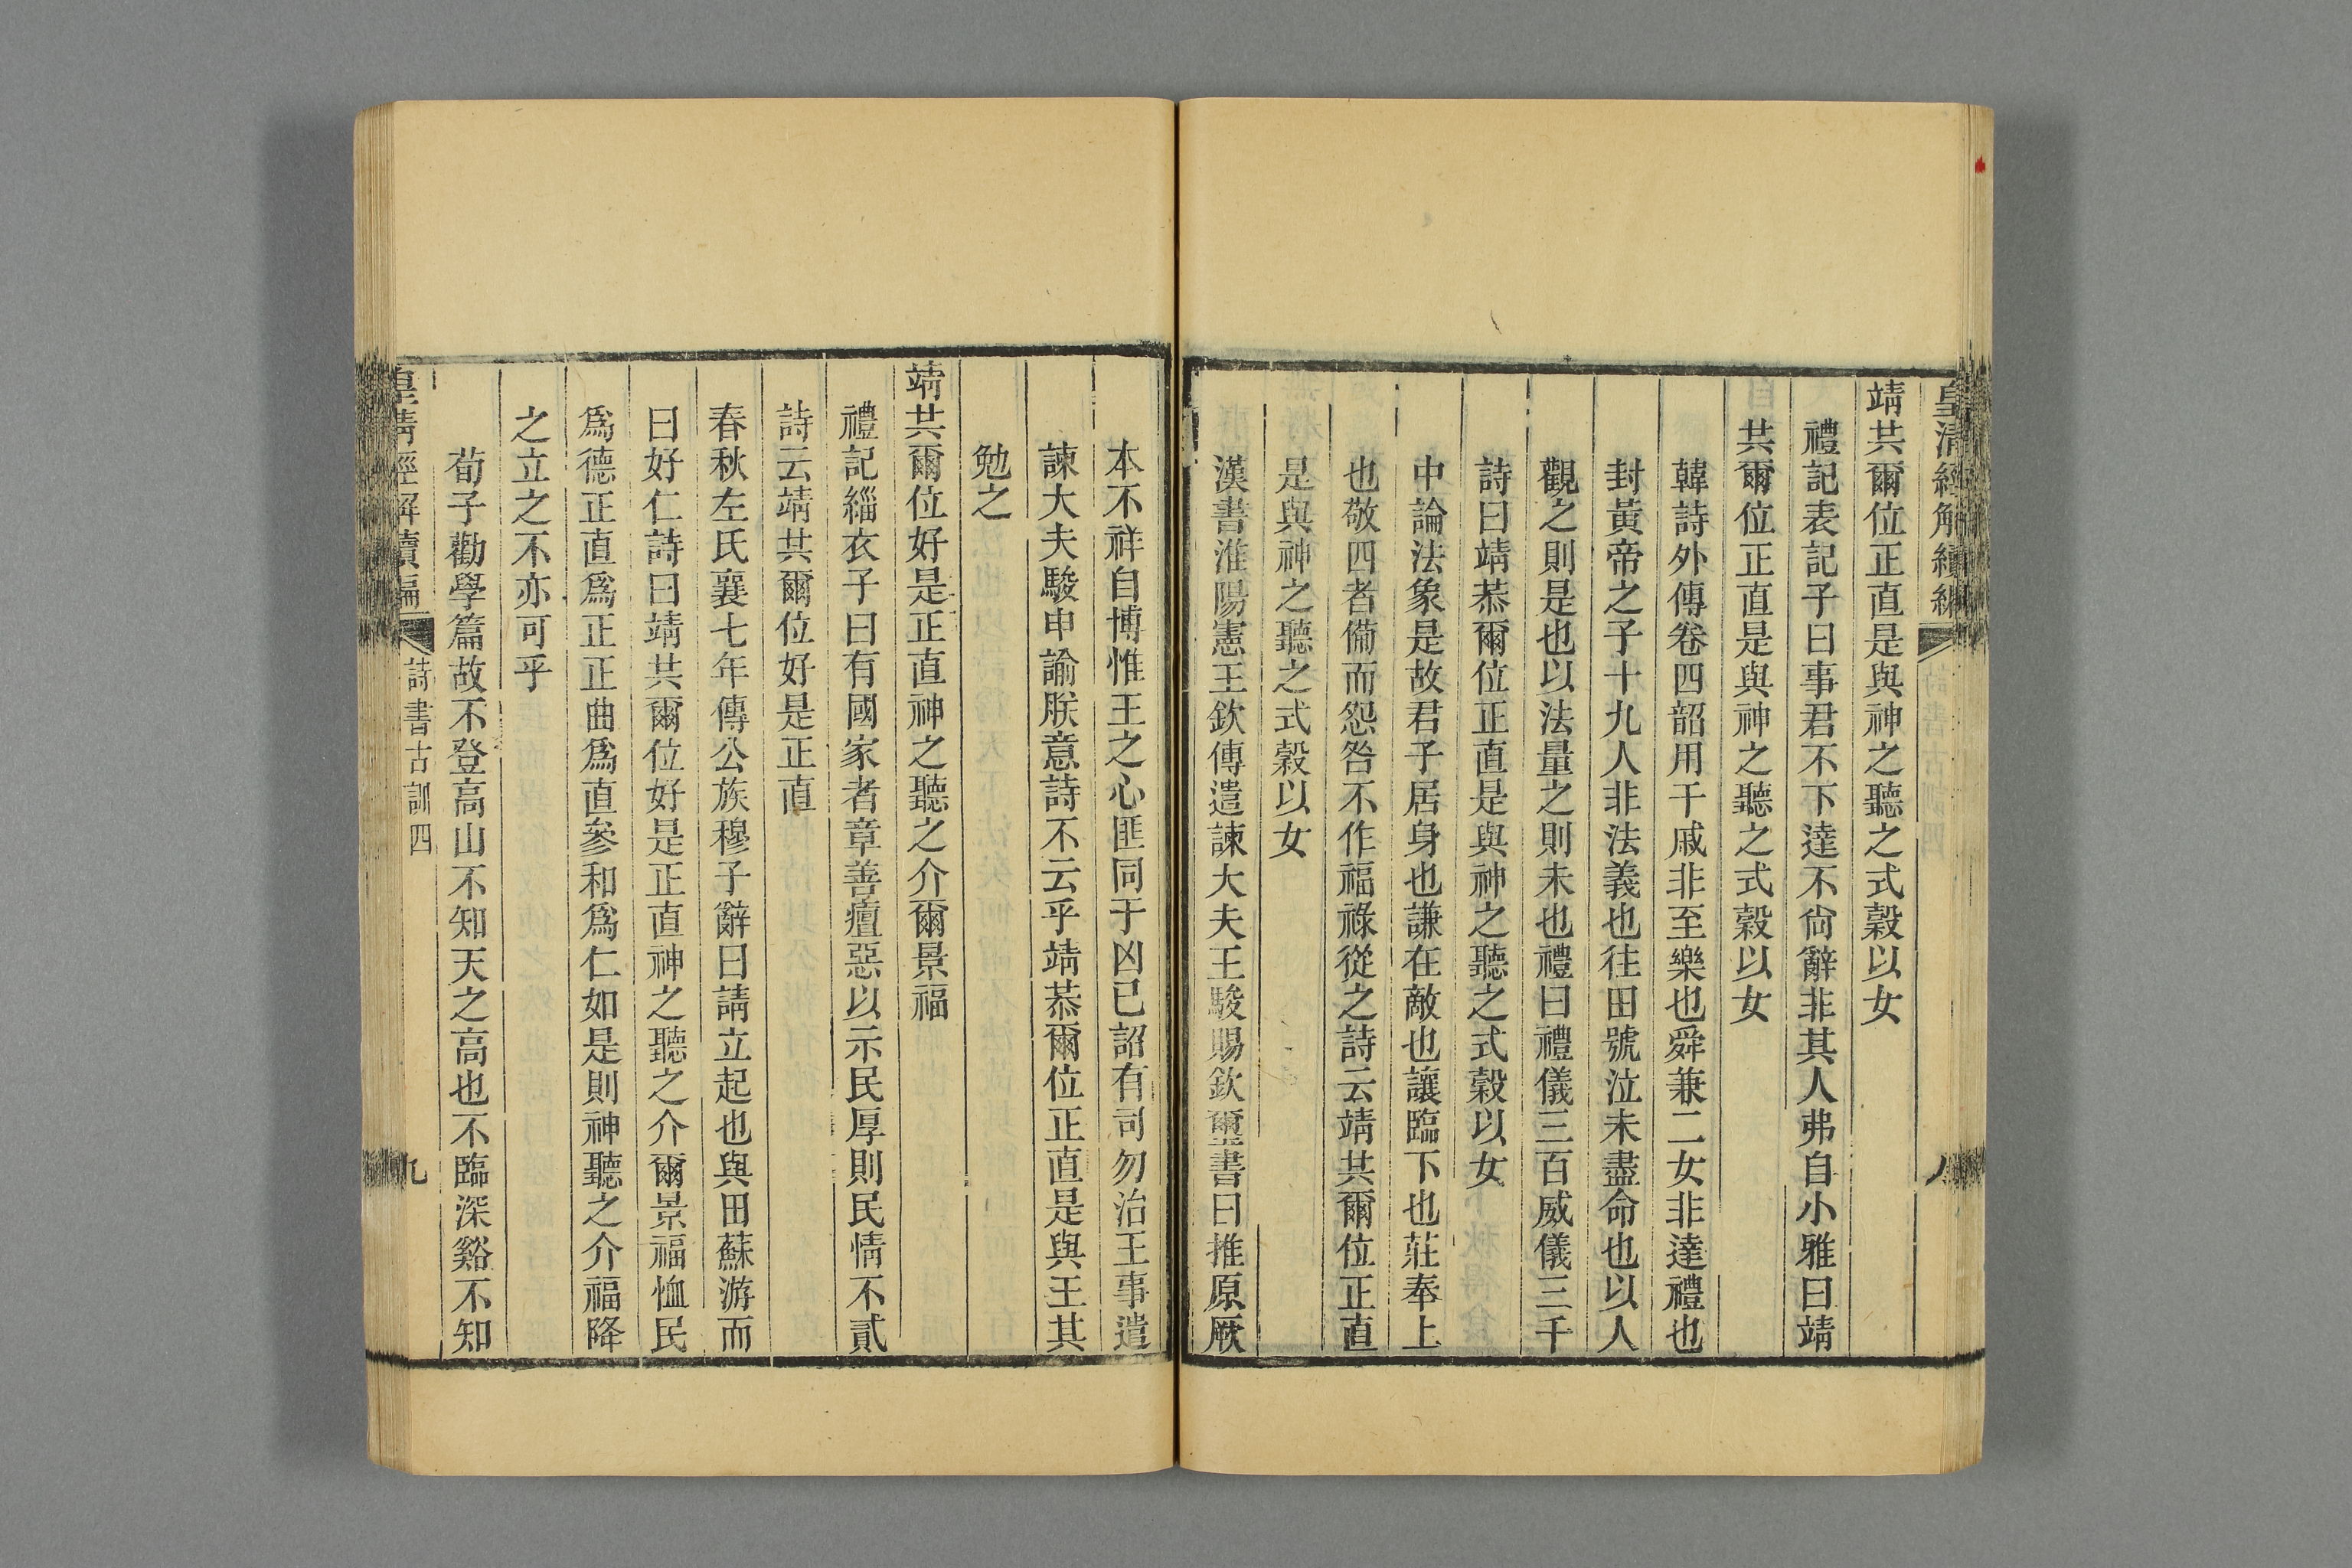 皇清經解續編
八
靖共爾位正直是與神之聽之式穀以女
禮記表記子曰事君不下達不尙辭非其人弗自小雅曰靖
共爾位正直是與神之聽之式穀以女
韓詩外傳卷四韶用干戚非至樂也舜兼二女非達禮也
封黃帝之子十九人非法義也往田號泣未盡命也以人
觀之則是也以法量之則未也禮曰禮儀三百威儀三千
詩曰靖恭爾位正直是與神之聽之式穀以女
中論法象是故君子居身也謙在敵也讓臨下也莊奉上
也敬四者備而怨咎不作福祿從之詩云靖共爾位正直
是與神之聽之式穀以女
漢書淮陽憲王欽傳遣諫大夫王駿賜欽璽書曰推原厥
本不祥自博惟王之心匪同于凶已詔有司勿治王事遣
諫大夫駿申諭朕意詩不云乎靖恭爾位正直是與王其
勉之
靖共爾位好是正直神之聽之介爾景福
禮記緇衣子曰有國家者章善癉惡以示民厚則民情不貳
詩云靖共爾位好是正直
春秋左氏襄七年傳公族穆子辭曰請立起也與田蘇游而
曰好仁詩曰靖共爾位好是正直神之聽之介爾景福恤民
爲德正直爲正正曲爲直參和爲仁如是則神聽之介福降
之立之不亦可乎
荀子勸學篇故不登高山不知天之高也不臨深谿不知
皇清經解續編
詩書古訓四
九